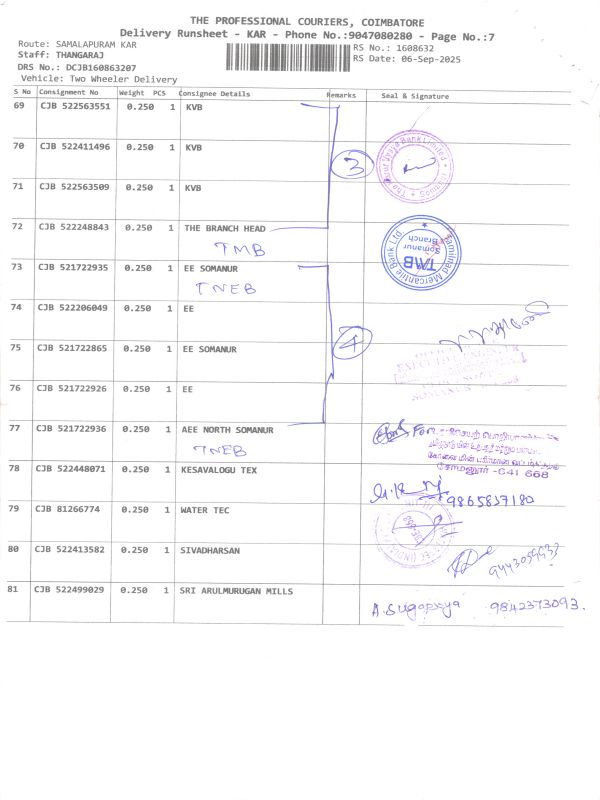 THE PROFESSIONAL COURIERS, COIMBATORE
Delivery Runsheet - KAR - Phone No.:9047080280 - Page No.:7
Route: SAMALAPURAM KAR
RS No.: 1608632
Staff: THANGARAJ
RS Date: 06-Sep-2025
DRS No.: DCJB160863207
Vehicle: Two Wheeler Delivery
S No Consignment No Weight PCS Consignee Details Remarks Seal & Signature
69 CJB 522563551 0.250 1 KVB
70 CJB 522411496 0.250 1 KVB
3
71 CJB 522563509 0.250 1 KVB
72 CJB 522248843 0.250 1 THE BRANCH HEAD
TMB
Tamilnad Mercantile Bank Ltd.
TMB
Somanur
Branch
73 CJB 521722935 0.250 1 EE SOMANUR
TNEB
74 CJB 522206049 0.250 1 EE
75 CJB 521722865 0.250 1 EE SOMANUR
4
76 CJB 521722926 0.250 1 EE
77 CJB 521722936 0.250 1 AEE NORTH SOMANUR
TNEB
For
சோமனூர் -641 668
78 CJB 522448071 0.250 1 KESAVALOGU TEX
9865837180
79 CJB 81266774 0.250 1 WATER TEC
80 CJB 522413582 0.250 1 SIVADHARSAN
81 CJB 522499029 0.250 1 SRI ARULMURUGAN MILLS
A. Sugapriya 9842373093.